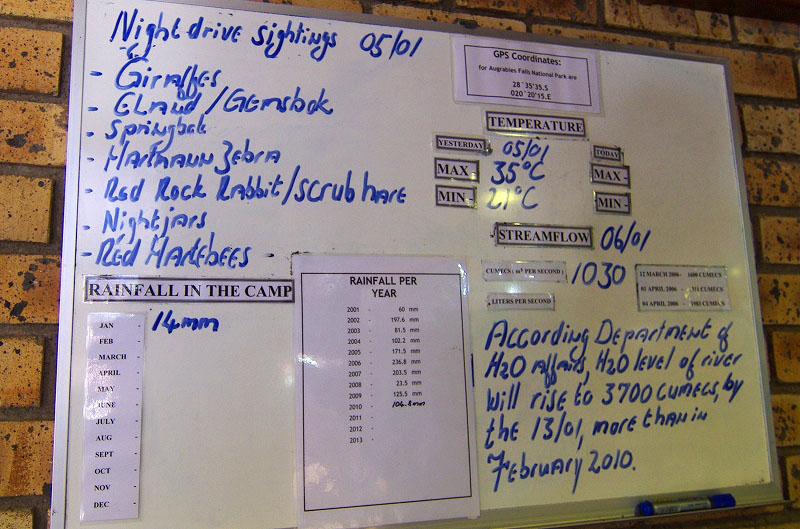 Night drive sightings 05/01
- Giraffes
- Eland/Gemsbok
- Springbok
- Hartmann Zebra
- Red Rock Rabbit/scrub hare
- Nightjars
- Red Hartebees -
GPS Coordinates:
for Augrabies Falls National Park are
28°35'35.S
020°20'15.E
TEMPERATURE
YESTERDAY 05/01 TODAY
MAX - 35°C MAX -
MIN - 21°C MIN -
STREAMFLOW 06/01
CUMECS (m³ PER SECOND) 1030
LITERS PER SECOND
12 MARCH 2006 - 1600 CUMECS
03 APRIL 2006 - CUMECS
04 APRIL 2006 - CUMECS
According Department of
H2O affairs, H2O level of river
will rise to 3700 cumecs, by
the 13/01, more than in
February 2010.
RAINFALL IN THE CAMP
JAN - 14mm
FEB -
MARCH -
APRIL -
MAY -
JUNE -
JULY -
AUG -
SEPT -
OCT -
NOV -
DEC -
RAINFALL PER
YEAR
2001 - 60 mm
2002 - 197.6 mm
2003 - 81.5 mm
2004 - 102.2 mm
2005 - 171.5 mm
2006 - 236.8 mm
2007 - 203.5 mm
2008 - 23.5 mm
2009 - 125.5 mm
2010 - mm
2011 -
2012 -
2013 -